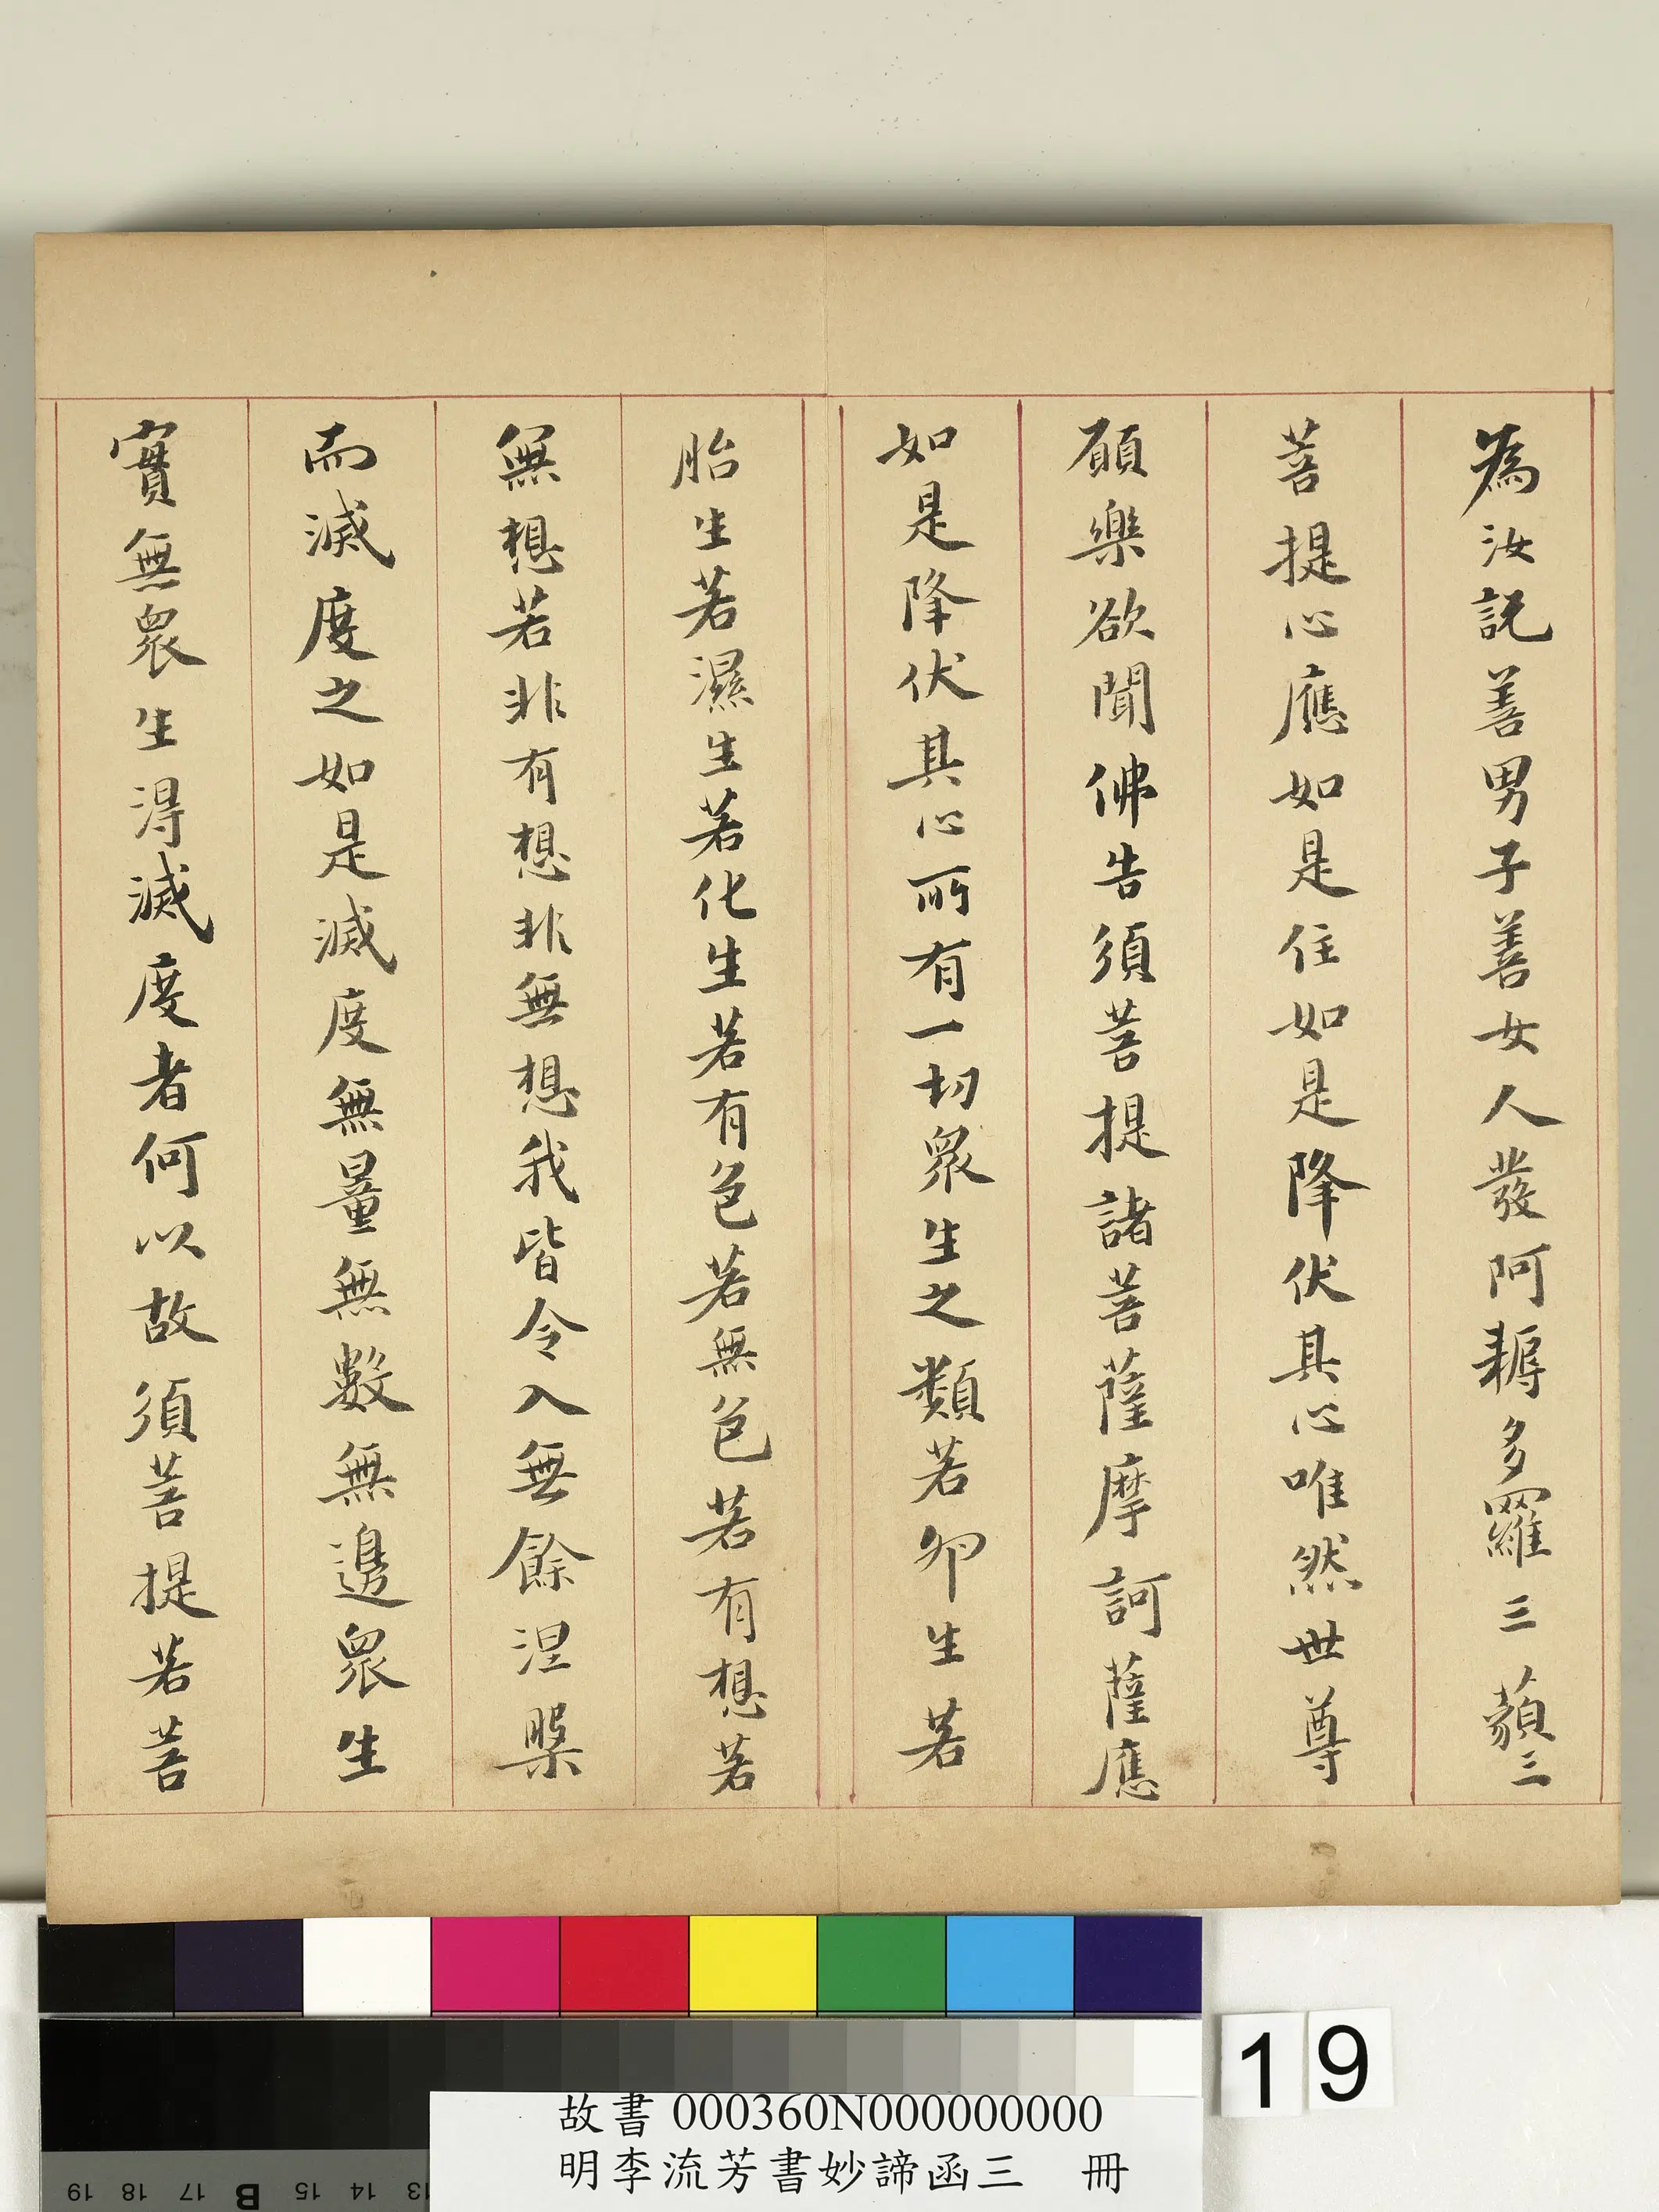 為汝說善男子善女人發阿耨多羅三藐三
菩提心應如是住如是降伏其心唯然世尊
願樂欲聞佛告須菩提諸菩薩摩訶薩應
如是降伏其心所有一切眾生之類若卵生若
胎生若濕生若化生若有色若無色若有想若
無想若非有想非無想我皆令入無餘涅槃
而滅度之如是滅度無量無數無邊眾生
實無眾生得滅度者何以故須菩提若菩
19
故書 000360N000000000
明李流芳書妙諦函三 冊
19 18 17 B 15 14 13